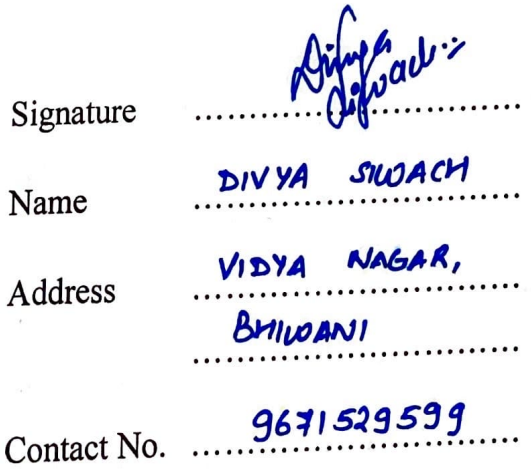 Signature Divya Siwach
Name DIVYA SIWACH
Address VIDYA NAGAR,
BHIWANI
Contact No. 9671529599